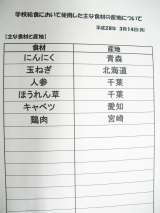 学校給食において使用した主な食材の産地について
平成28年 3月14日(月)
【主な食材と産地】
食材 産地
にんにく 青森
玉ねぎ 北海道
人参 千葉
ほうれん草 千葉
キャベツ 愛知
鶏肉 宮崎